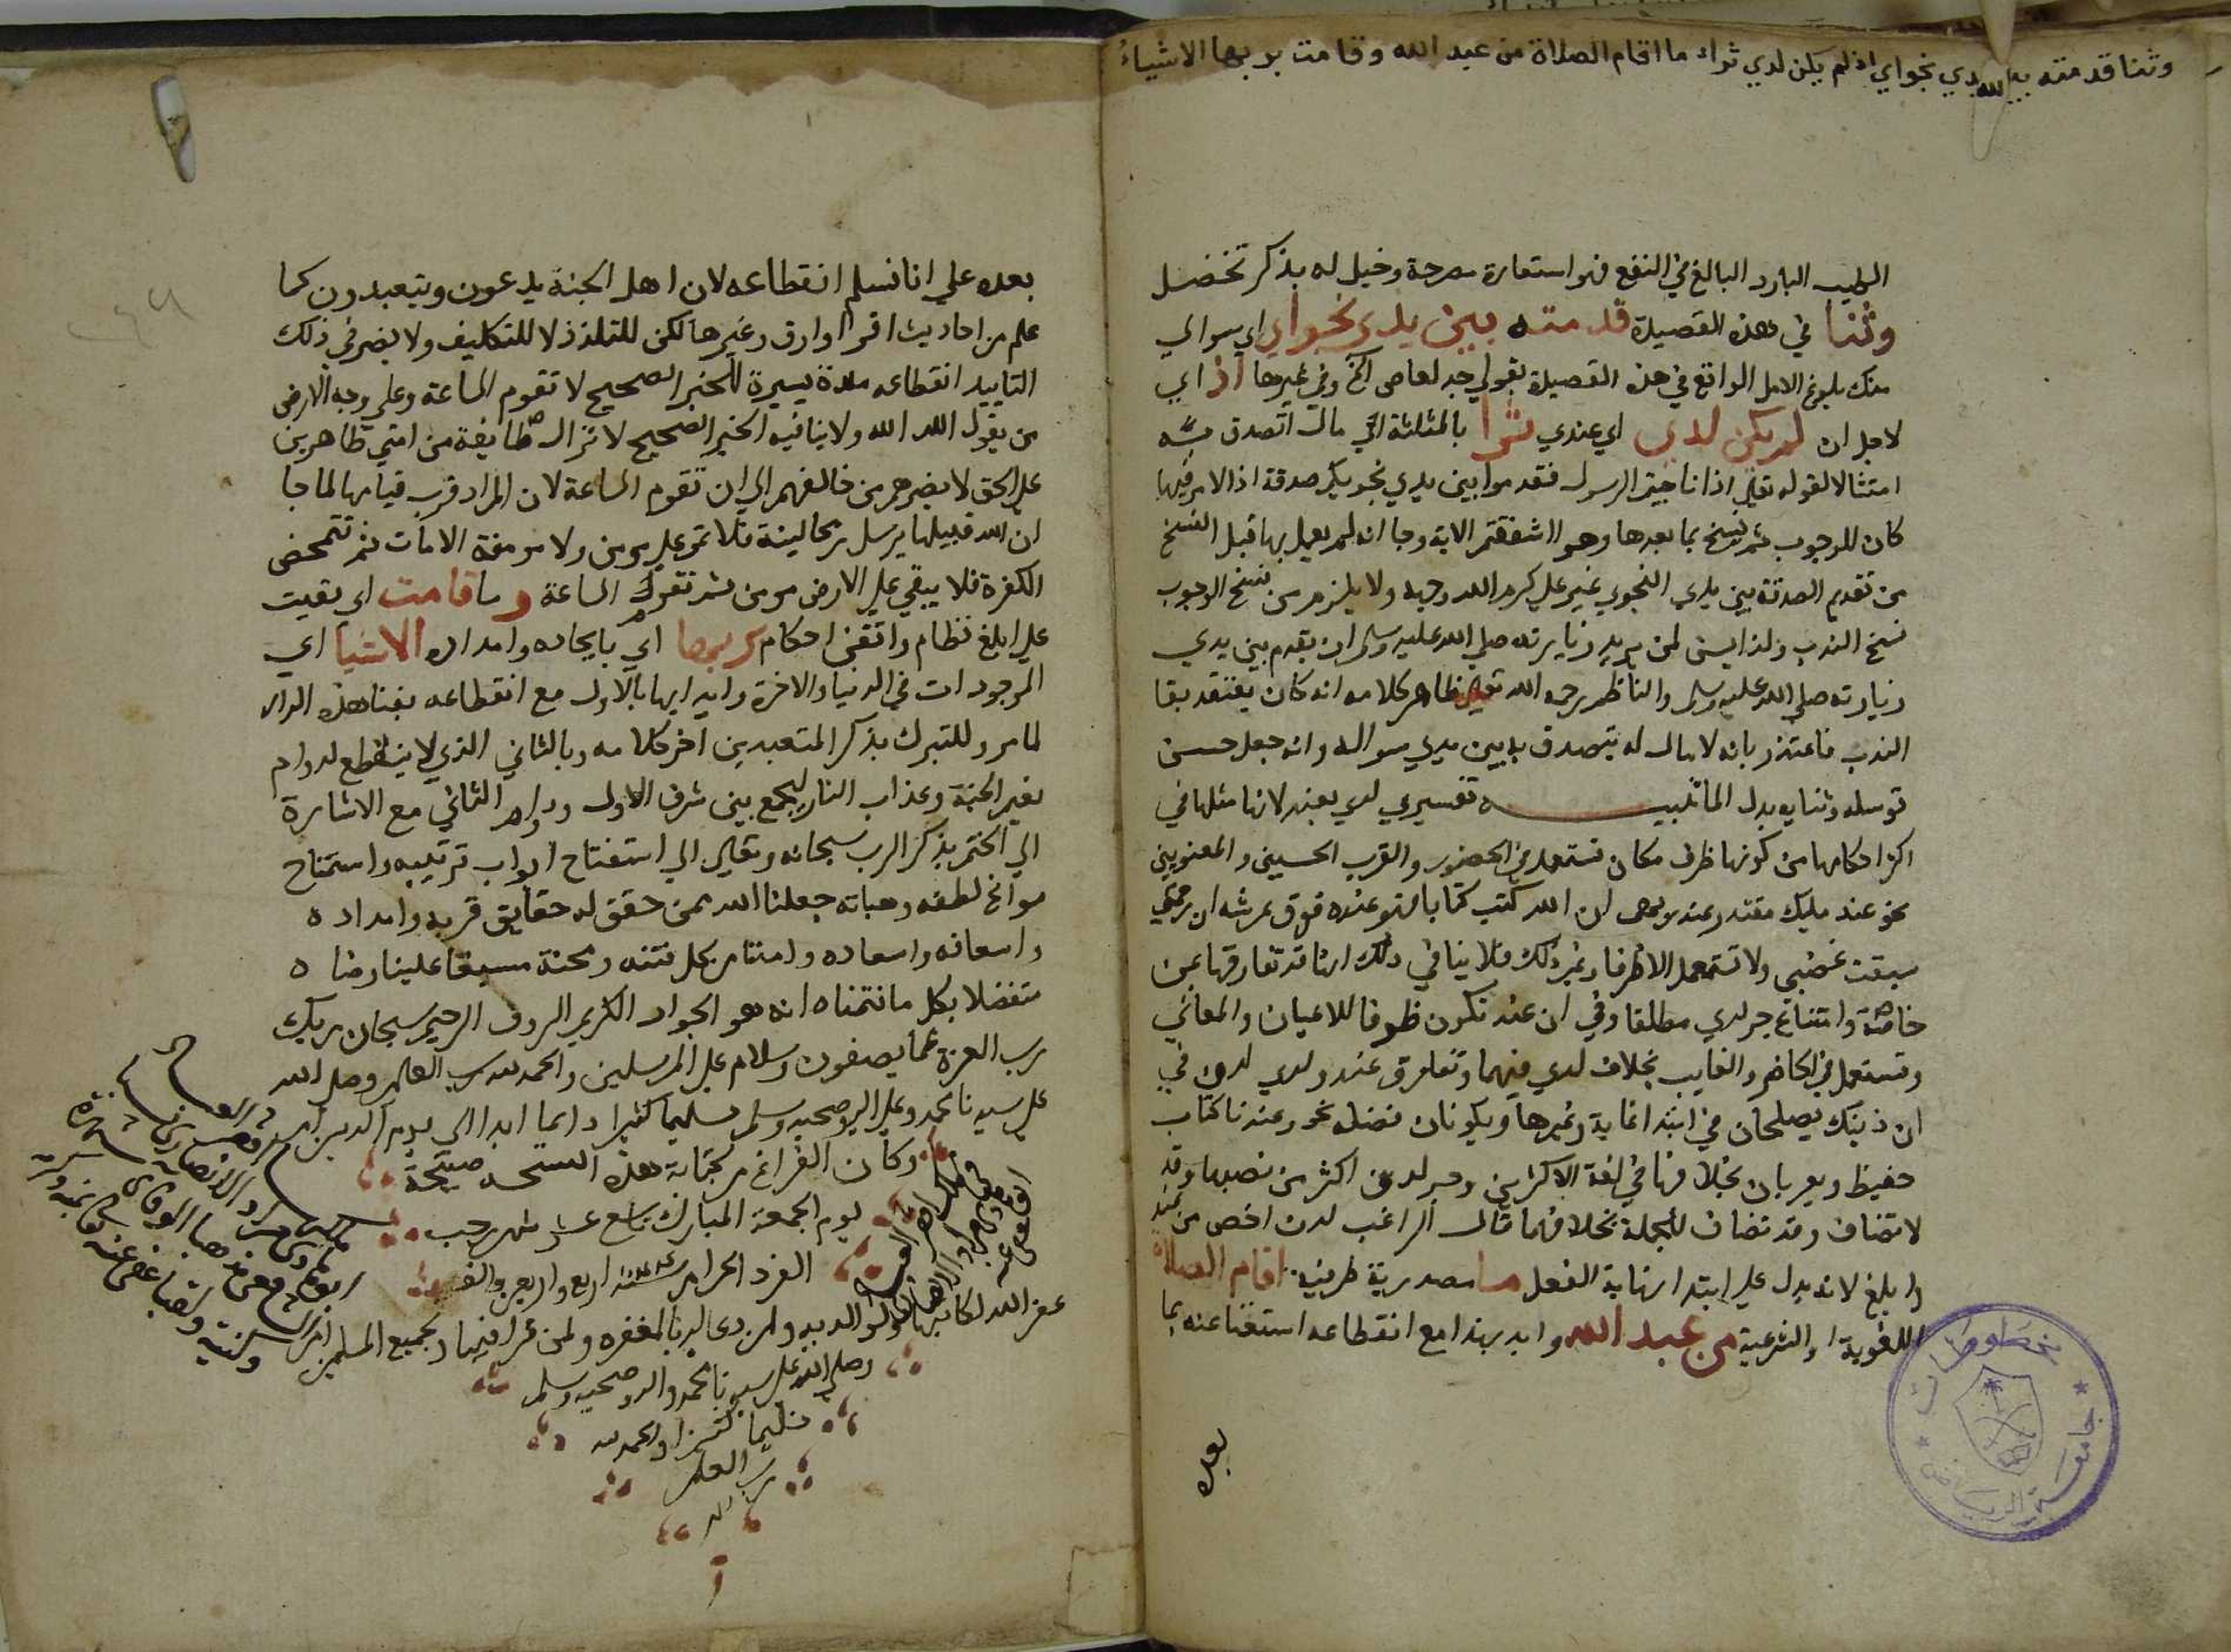 وثنا قدمته بين يدي نجواي اذ لم يكن لدي ثراء ما اقام الصلاة من عبد الله وقامت بربها الاشياء
الطيب البارد البالغ في النفع فهو استعارة مصرحة وخيل له بذكر تخضل
وثنا في هذه القصيدة قدمته بين يدي نجواي اي سوالي
منك بلوغ الامل الواقع في هذه القصيدة بقولي جد لعاص الخ وفي غيرها اذ اي
لاجل ان لم يكن لدي اي عندي ثرا بالمثلثة اي مال اتصدق منه
امتثالا لقوله تعالي اذا ناجيتم الرسول فقدموا بين يدي نجويكم صدقة اذ الامر فيها
كان للوجوب ثم نسخ بما بعدها وهو ااشفقتم الاية وجا انه لم يعمل بها قبل النسخ
من تقديم الصدقة بين يدي النجوي غير علي كرم الله وجهه ولا يلزم من نسخ الوجوب
نسخ الندب ولذا يسن لمن يريد زيارته صلي الله عليه وسلم ان يقدم بين يدي
زيارته صلي الله عليه وسلم والناظم رحمه الله تعالي ظاهر كلامه انه كان يعتقد بقا
الندب فاعتذر بانه لا مال له يتصدق به بين يدي سواله وانه جعل حسن
توسله وثنايه بدل المال تنبيه تفسيري لدي بعند لانها مثلها في
اكثر احكامها من كونها ظرف مكان تستعمل في الحضور والقرب الحسيين والمعنويين
نحو عند مليك مقتدر عنده ان الله كتب كتابا فهو عنده فوق عرشه ان رحمتي
سبقت غضبي ولا تستعمل الا ظرفا وغير ذلك فلا ينافي ذلك انها قد تفارقها عن
خاصة وامتناع جر لدي مطلقا وفي ان عند تكون ظرفا للاعيان والمعاني
وتستعمل في الحاضر والغايب بخلاف لدي فيهما وتفارق عند ولدي لدن في
ان ذينك يصلحان في ابتدا غاية وغيرها ويكونان فضلة نحو وعندنا كتاب
حفيظ ويعربان بخلافها في لغة الاكثرين وجر لدن اكثر من نصبها وقد
لا تضاف وقد تضاف للجملة بخلافهما قال الراغب لدن اخص من عند
وابلغ لانه يدل علي ابتدا نهاية الفعل ما مصدرية ظرفية اقام الصلاة
اللغوية او الشرعية من عبد الله وابد بهذا مع انقطاعه استغنا عنه بما
بعده
بعده علي انا نسلم انقطاعه لان اهل الجنة يدعون ويتعبدون كما
علم من احاديث اقرا وارق وغيرها لكن للتلذذ لا للتكليف ولا يضر في ذلك
التاييد انقطاعه مدة يسيرة للخبر الصحيح لا تقوم الساعة وعلي وجه الارض
من يقول الله الله ولا ينافيه الخبر الصحيح لا تزال طايفة من امتي ظاهرين
علي الحق لا يضرهم من خالفهم الي ان تقوم الساعة لان المراد قرب قيامها لما جا
ان الله قبيلها يرسل ريحا لينة فلا تمر علي مومن ولا مومنة الا مات ثم تتمحض
الكفرة فلا يبقي علي الارض مومن ثم تقوم الساعة وما قامت اي بقيت
علي ابلغ نظام واتقن احكام بربها اي بايجاده وامداده الاشيا اي
الموجودات في الدنيا والاخرة وابد ايها بالاول مع انقطاعه بفنا هذه الدار
لما مر وللتبرك بذكر المتعبدين اخر كلامه وبالثاني الذي لا ينقطع لدوام
نعيم الجنة وعذاب النار ليجمع بين شرف الاول ودوام الثاني مع الاشارة
الي الختم بذكر الرب سبحانه وتعالي الي استفتاح ابواب تربيبه واستمناح
موانح لطفه وهباته جعلنا الله ممن حقق له حقايق قربه وامداده
واسعافه واسعاده وامتنا من كل فتنه ومحنة مسبغا علينا رضاه
متفضلا بكل ما نتمناه انه هو الجواد الكريم الروف الرحيم سبحان ربك
رب العزة عما يصفون وسلام علي المرسلين والحمد لله رب العالمين وصلي الله
علي سيدنا محمد وعلي اله وصحبه وسلم تسليما كثيرا دايما ابدا الي يوم الدين
وكان الفراغ من كتابة هذه النسخة صبيحة
يوم الجمعة المبارك تاسع عشر شهر رجب
الفرد الحرام سنة اربع واربعين والف
غفر الله لكاتبها ولوالديه ولمن دعا لهم بالمغفره ولمن قرا فيها ولجميع المسلمين امين
وصلي الله علي سيدنا محمد واله وصحبه وسلم
تسليما كثيرا والحمد لله
رب العلمين